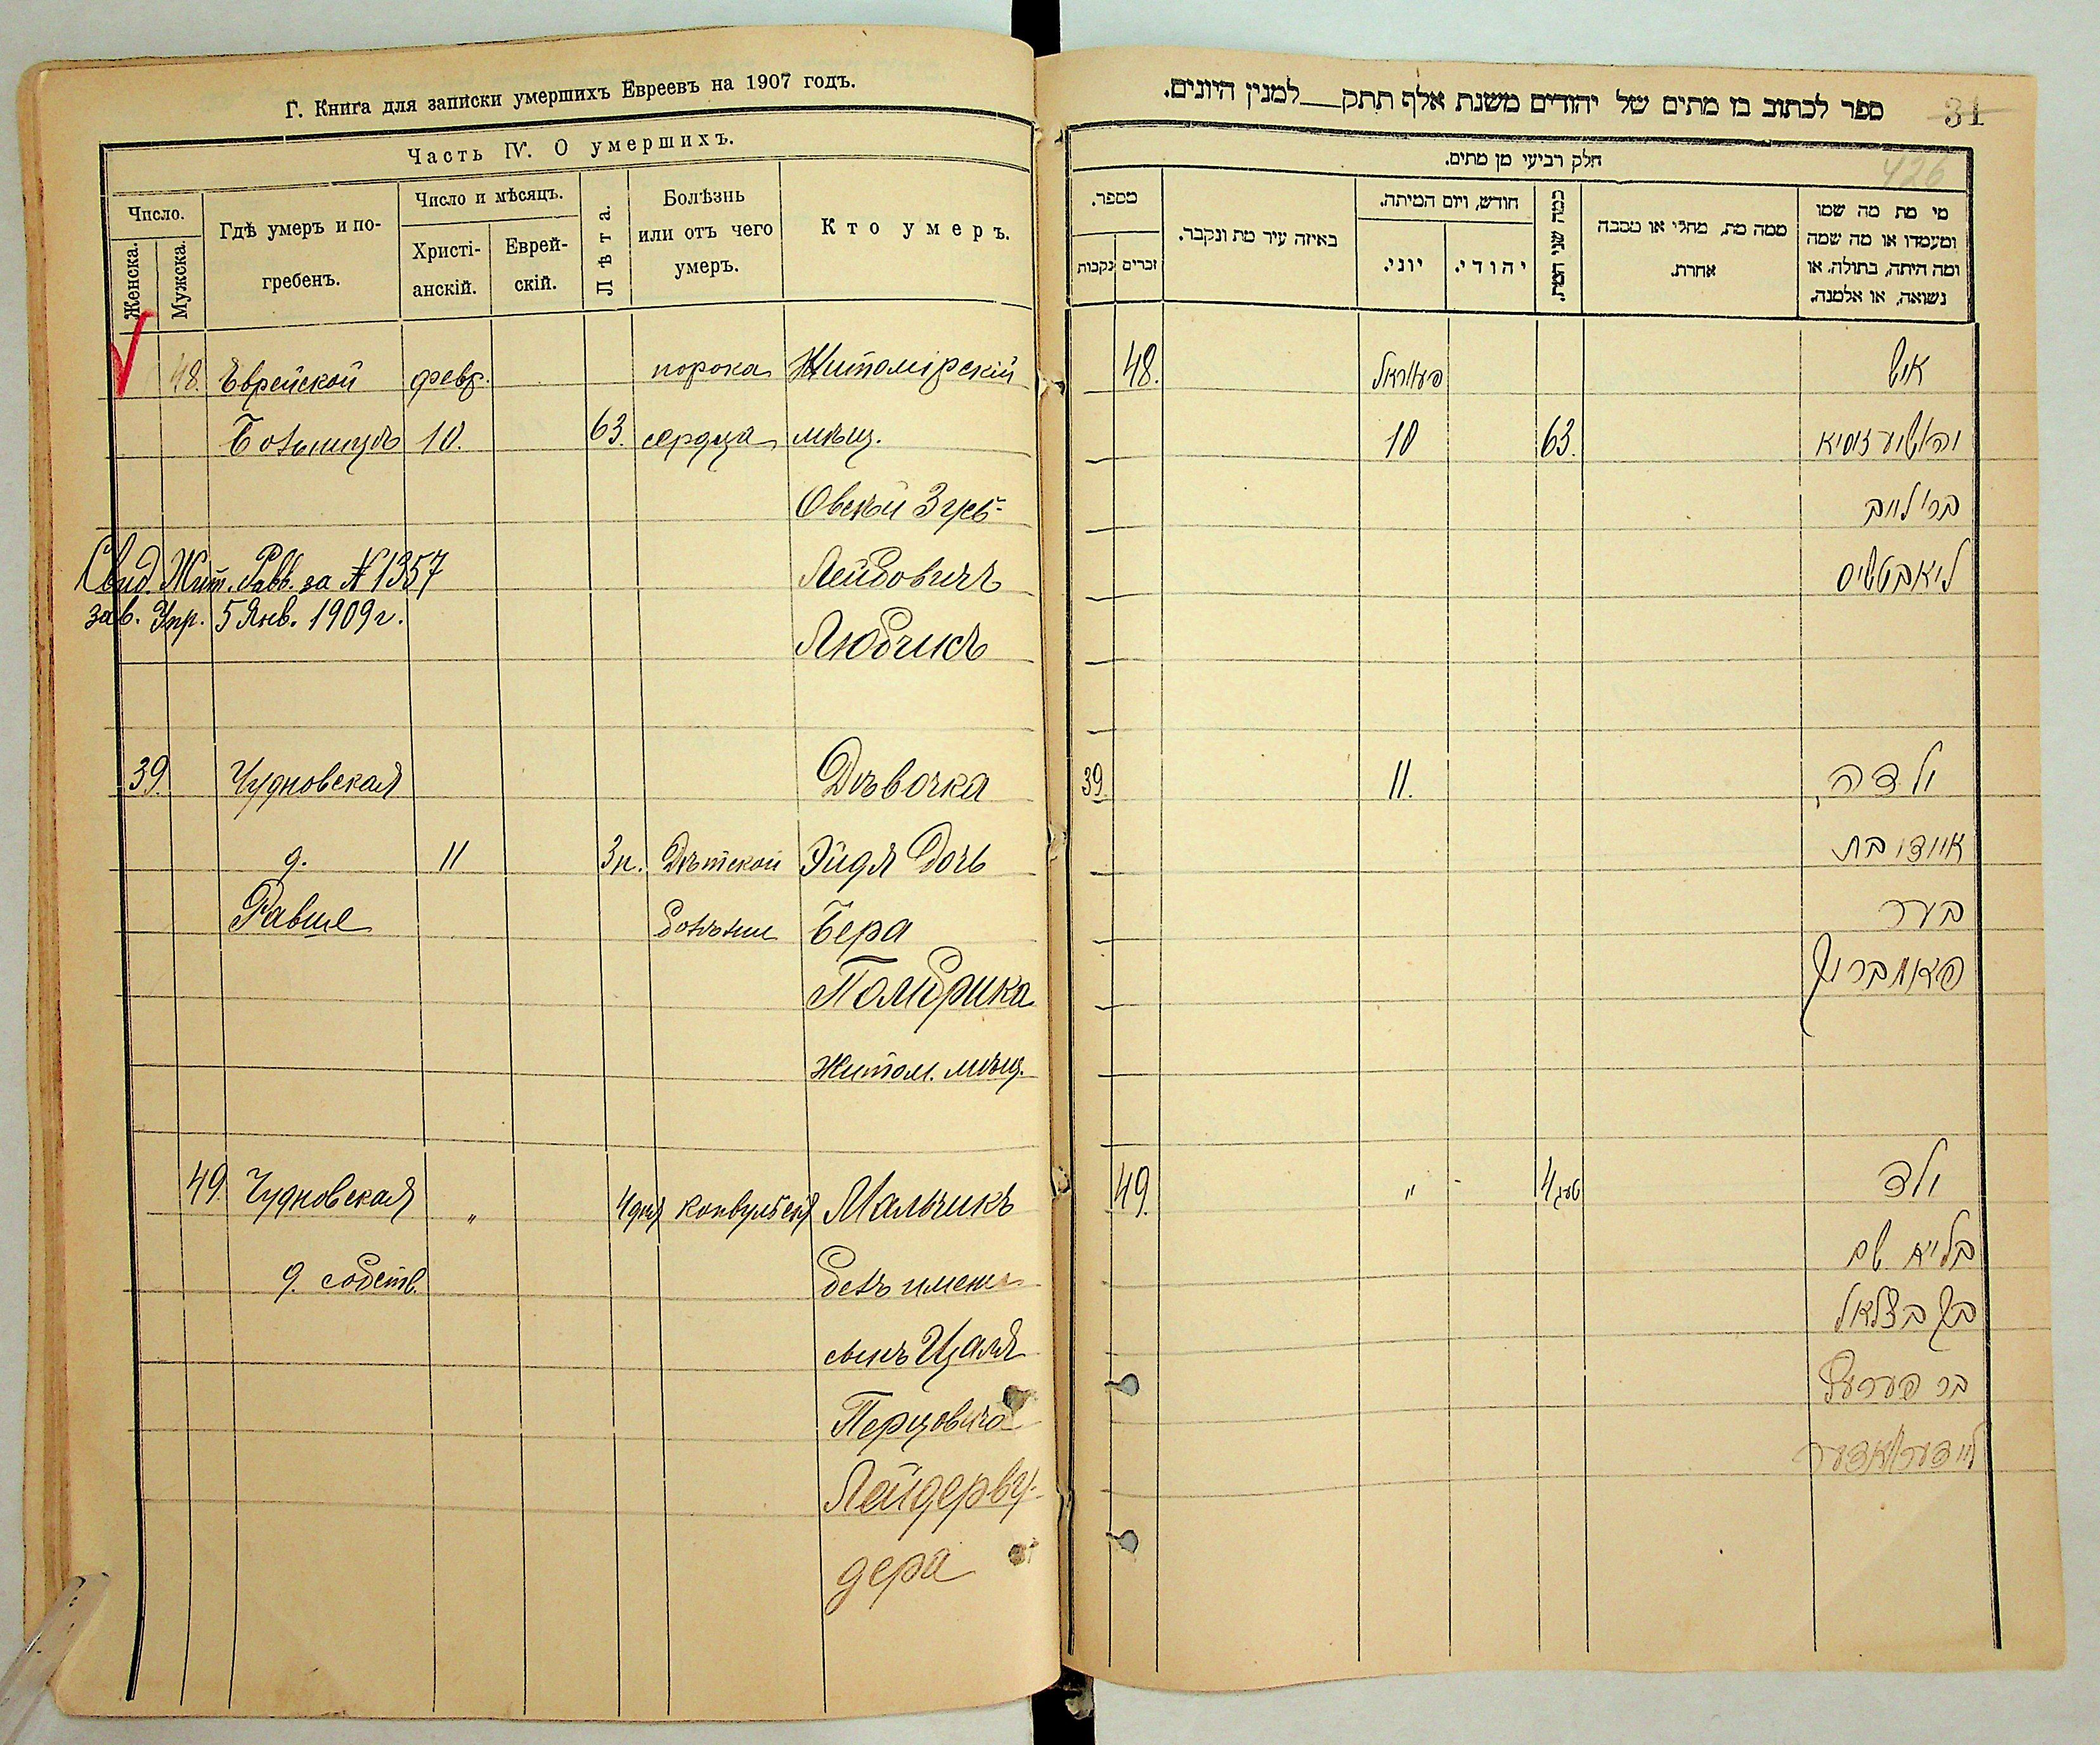 Г. Книга для записки умершихъ Евреевъ на 1907 годъ.
Часть IV. О умершихъ.
Число.
Женска.
Мужска.
Гдѣ умеръ и по-
гребенъ.
Число и мѣсяцъ.
Христі-
анскій.
Еврей-
скій.
Лѣта.
Болѣзнь
или отъ чего
умеръ.
Кто умеръ.
48. Еврейской февр. порока Житомірскій
Больницѣ 10. 63. сердца мѣщ.
Овсѣй Зусь-
Лейбовичъ
Любчикъ
Свид. Жит. Равв. за № 1357
зав. Упр. 5 Янв. 1909 г.
39. Чудновская Дѣвочка
д. 11 3 н. Дѣтской Эйдя Дочь
Равве Болѣзни Бера
Помбрика
Житом. мѣщ.
49. Чудновская „ 4 дня конвульсія Мальчикъ
д. собств. безъ имени
сынъ Цаля
Перцовича
Лейдерву-
дера
ספר לכתוב בו מתים של יהודים משנת אלף תתק למנין היונים.
31
426
חלק רביעי מן מתים.
מספר.
זכרים
נקבות
באיזה עיר מת ונקבר.
חודש, ויום המיתה.
יוני.
יהודי.
כמה שני המת.
ממה מת, מחלי או מסבה
אחרת.
מי מת מה שמו
ומעמדו או מה שמה
ומה היתה, בתולה, או
נשואה, או אלמנה.
48. פעווראל איש
10 63. יהושע זוסיא
בר' לייב
ליאבטשיק
39. 11. ילדה
איידי בת
בער
פאמבריק
49. „ 4 טעג ילד
בליא שם
בן בצלאל
בר פערעץ